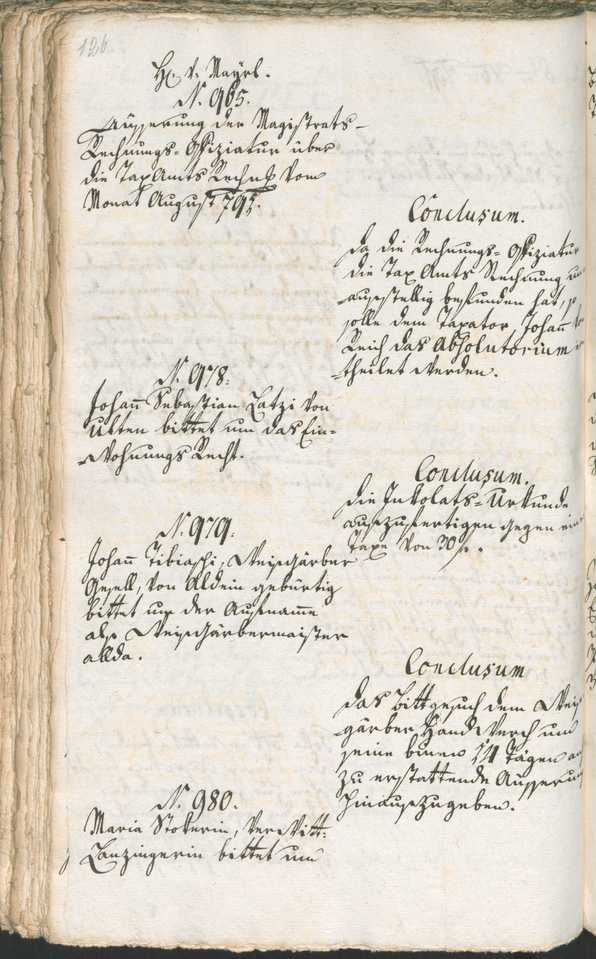 126.
H. v. Mayrl.
N. 965.
Äusserung der Magistrats-
Rechnungs-Offiziatur über
die Tax Amts Rechnung vom
Monat August 795.
Conclusum.
Da die Rechnungs-Offiziatur
die Tax Amts Rechnung un
ausstellig befunden hat, so
solle dem Taxator Johann
Reich das Absolutorium er
theilet werden.
N. 978.
Johann Sebastian Latzi von
Ulten bittet um das Ein-
wohnungs Recht.
Conclusum.
Die Inkolats-Urkunde
auszufertigen gegen ein
Taxe von 30 f.
N. 979.
Johann Tibiaschi, Weisgärber
Gesell, von Aldein gebürtig
bittet um der Aufnamme
als Weisgärbermaister
allda.
Conclusum
Das Bittgesuch dem Weis
gärber Handwerch um
seine binen 14 Tägen an
zu erstattende Äusserun
hinauszugeben.
N. 980.
Maria Stokerin, verwitt:
Lanzingerin bittet um